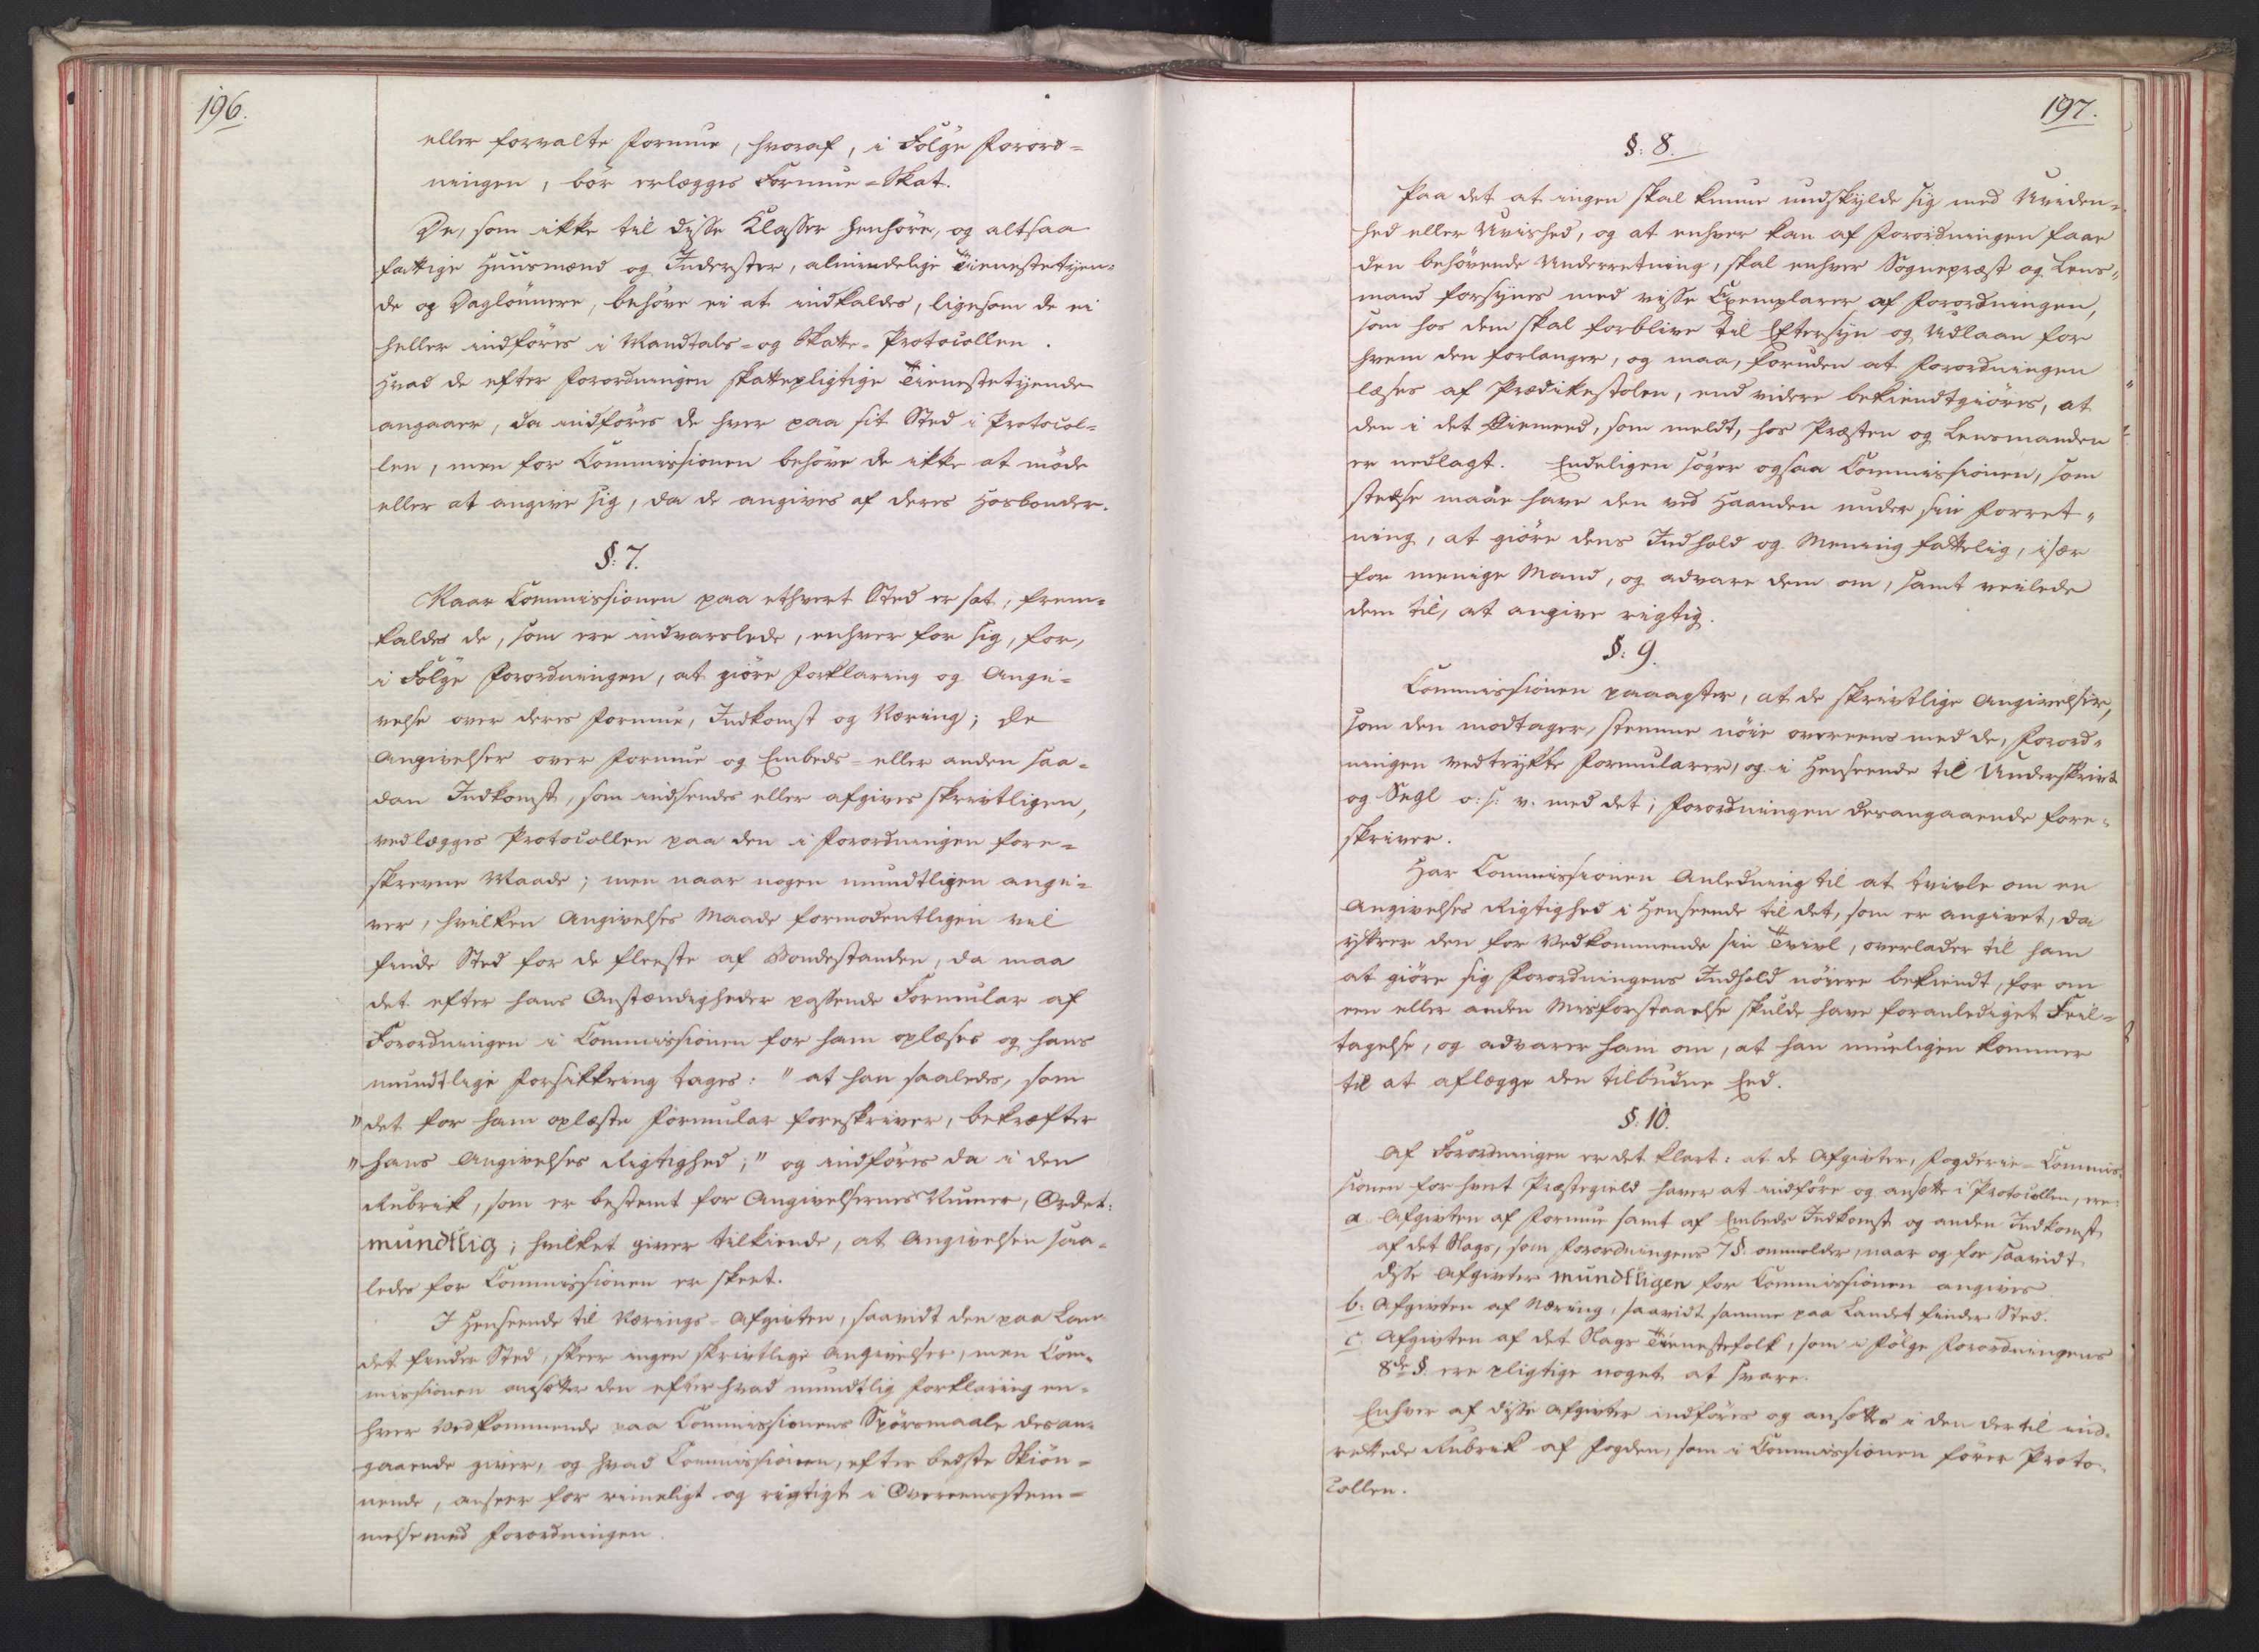 196.
eller forvalte Formue, hvoraf, i Følge Forord=
ningen, bør erlægges Formue=Skat.
De, som ikke til disse Klasser henhøre, og altsaa
fattige Huusmænd og Inderster, almindelige Tienestetyen=
de og Daglønnere, behøve ei at indkaldes, ligesom de ei
heller indføres i Mandtals= og Skatte=Protocollen.
Hvad de efter Forordningen skattepligtige Tienestetyende
angaaer, da indføres de hver paa sit Sted i Protocol=
len, men for Commissionen behøve de ikke at møde
eller at angive sig, da de angives af deres Hosbonder.
§: 7.
Naar Commissionen paa ethvert Sted er sat, frem=
kaldes de, som ere indvarslede, enhver for sig, for,
i Følge Forordningen, at giøre Forklaring og Angi=
velse over deres Formue, Indkomst og Næring; De
Angivelser over Formue og Embeds= eller anden saa=
dan Indkomst, som indsendes eller afgives skrivtligen,
vedlægges Protocollen paa den i Forordningen fore=
skrevne Maade; men naar nogen mundtligen angi=
ver, hvilken Angivelses Maade formodentligen vil
finde Sted for de fleeste af Bondestanden, da maa
det efter hans Omstændigheder passende Formular af
Forordningen i Commissionen for ham oplæses og hans
mundtlige Forsikkring tages: "at han saaledes, som
"det for ham oplæste Formular foreskriver, bekræfter
"hans Angivelses Rigtighed;" og indføres da i den
Rubrik, som er bestemt for Angivelsernes Numer, Ordet:
mundtlig; hvilket giver tilkiende, at Angivelsen saa=
ledes for Commissionen er skeet.
I Henseende til Nærings=Afgivten, saavidt den paa Lan=
det finder Sted, skeer ingen skrivtlige Angivelser, men Com=
missionen ansætter den efter hvad mundtlig Forklaring en=
hver Vedkommende paa Commissionens Spørsmaale desan=
gaaende giver, og hvad Commissionen, efter bedste Skiøn=
nende, anseer for rimeligt og rigtigt i Overeensstem=
melse med Forordningen.
197.
§: 8.
Paa det at ingen skal kunne undskylde sig med Uviden=
hed eller Uvished, og at enhver kan af Forordningen faae
den behøvende Underretning, skal enhver Sognepræst og Lens=
mand forsynes med visse Exemplarer af Forordningen,
som hos dem skal forblive til Eftersyn og Udlaan for
hvem den forlanger, og maa, foruden at Forordningen
læses af Prædikestolen, end videre bekiendtgiøres, at
den i det Øiemeed, som meldt, hos Præsten og Lensmanden
er nedlagt. Endeligen søger ogsaa Commissionen, som
stedse maae have den ved Haanden under sin Forret=
ning, at giøre dens Indhold og Mening fattelig, især
for menige Mand, og advare dem om, samt veilede
dem til, at angive rigtig.
§: 9.
Commissionen paaagter, at de skrivtlige Angivelser,
som den modtager, stemme nøie overeens med de, Forord=
ningen vedtrykte Formularer, og i Henseende til Underskrivt
og Segl o: s: v. med det, Forordningen desangaaende fore=
skriver.
Har Commissionen Anledning til at tvivle om en
Angivelses Rigtighed i Henseende til det, som er angivet, da
yttrer den for Vedkommende sin Tvivl, overlader til ham
at giøre sig Forordningens Indhold nøiere bekiendt, for om
een eller anden Misforstaaelse skulde have foranlediget Feil=
tagelse, og advarer ham om, at han mueligen kommer
til at aflægge den tilbudne Eed.
§: 10.
Af Forordningen er det klart: at de Afgivter, Fogderie=Commis=
sionen for hvert Præstegield haver at indføre og ansætte i Protocollen, ere:
a. Afgivten af Formue samt af Embeds Indkomst og anden Indkomst
af det Slags, som Forordningens 7 §. ommelder, naar og for saavidt
disse Afgivter mundtligen for Commissionen angives.
b. Afgivten af Næring, saavidt samme paa Landet finder Sted.
c. Afgivten af det Slags Tienestefolk, som i Følge Forordningens
8de §. ere pligtige noget at svare.
Enhver af disse Afgivter indføres og ansættes i den dertil ind=
rettede Rubrik af Fogden, som i Commissionen fører Proto=
collen.